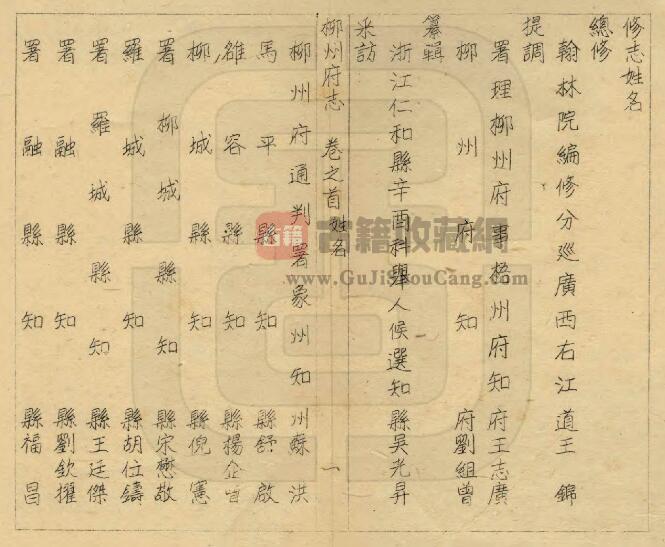 修志姓名
總修
翰林院編修分巡廣西右江道王錦
提調
署理柳州府事梧州府知府王志廣
柳州府知府劉組曾
纂輯
浙江仁和縣辛酉科舉人候選知縣吳光昇
采訪
柳州府志 卷之首 姓名 一
柳州府通判署象州知州蘇洪
馬平縣知縣舒啟
雒容縣知縣楊
柳城縣知縣倪憲
署柳城縣知縣宋懋敬
羅城縣知縣胡位鑄
署羅城縣知縣王廷傑
署融縣知縣劉欽擢
署融縣知縣福昌
古籍
古籍收藏網
www.GuJiShouCang.com